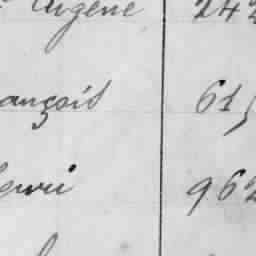 Eugène 242
ançois 615
enri 962